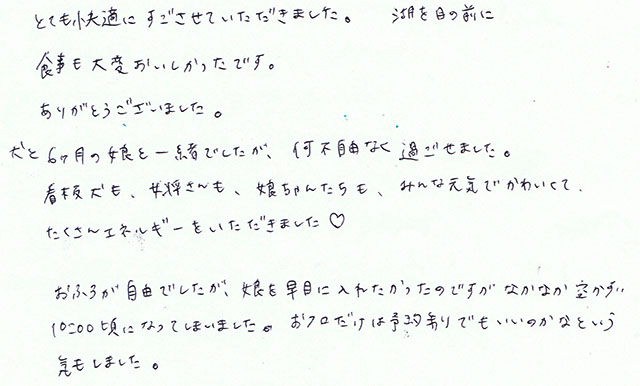 とても快適にすごさせていただきました。 湖を目の前に
食事も大変おいしかったです。
ありがとうございました。
犬と6ヶ月の娘と一緒でしたが、何不自由なく過ごせました。
看板犬も、女将さんも、娘ちゃんたちも、みんな元気でかわいくて、
たくさんエネルギーをいただきました♡
おふろが自由でしたが、娘を早目に入れたかったのですがなかなか空かず、
10:00頃になってしまいました。おフロだけは予約制でもいいのかなという
気もしました。